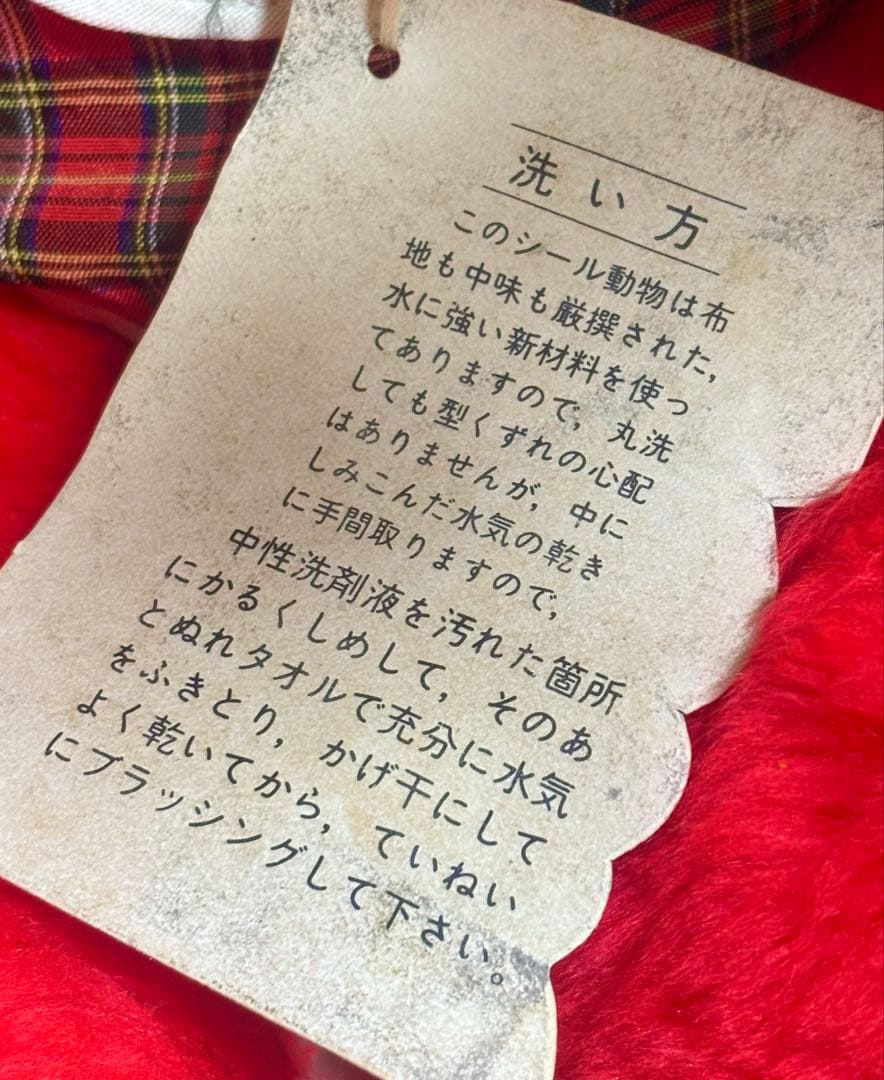 洗い方
このシール動物は布
地も中味も厳撰された,
水に強い新材料を使っ
てありますので, 丸洗
しても型くずれの心配
はありませんが, 中に
しみこんだ水気の乾き
に手間取りますので,
中性洗剤液を汚れた箇所
にかるくしめして, そのあ
とぬれタオルで充分に水気
をふきとり, かげ干にして
よく乾いてから, ていねい
にブラッシングして下さい。